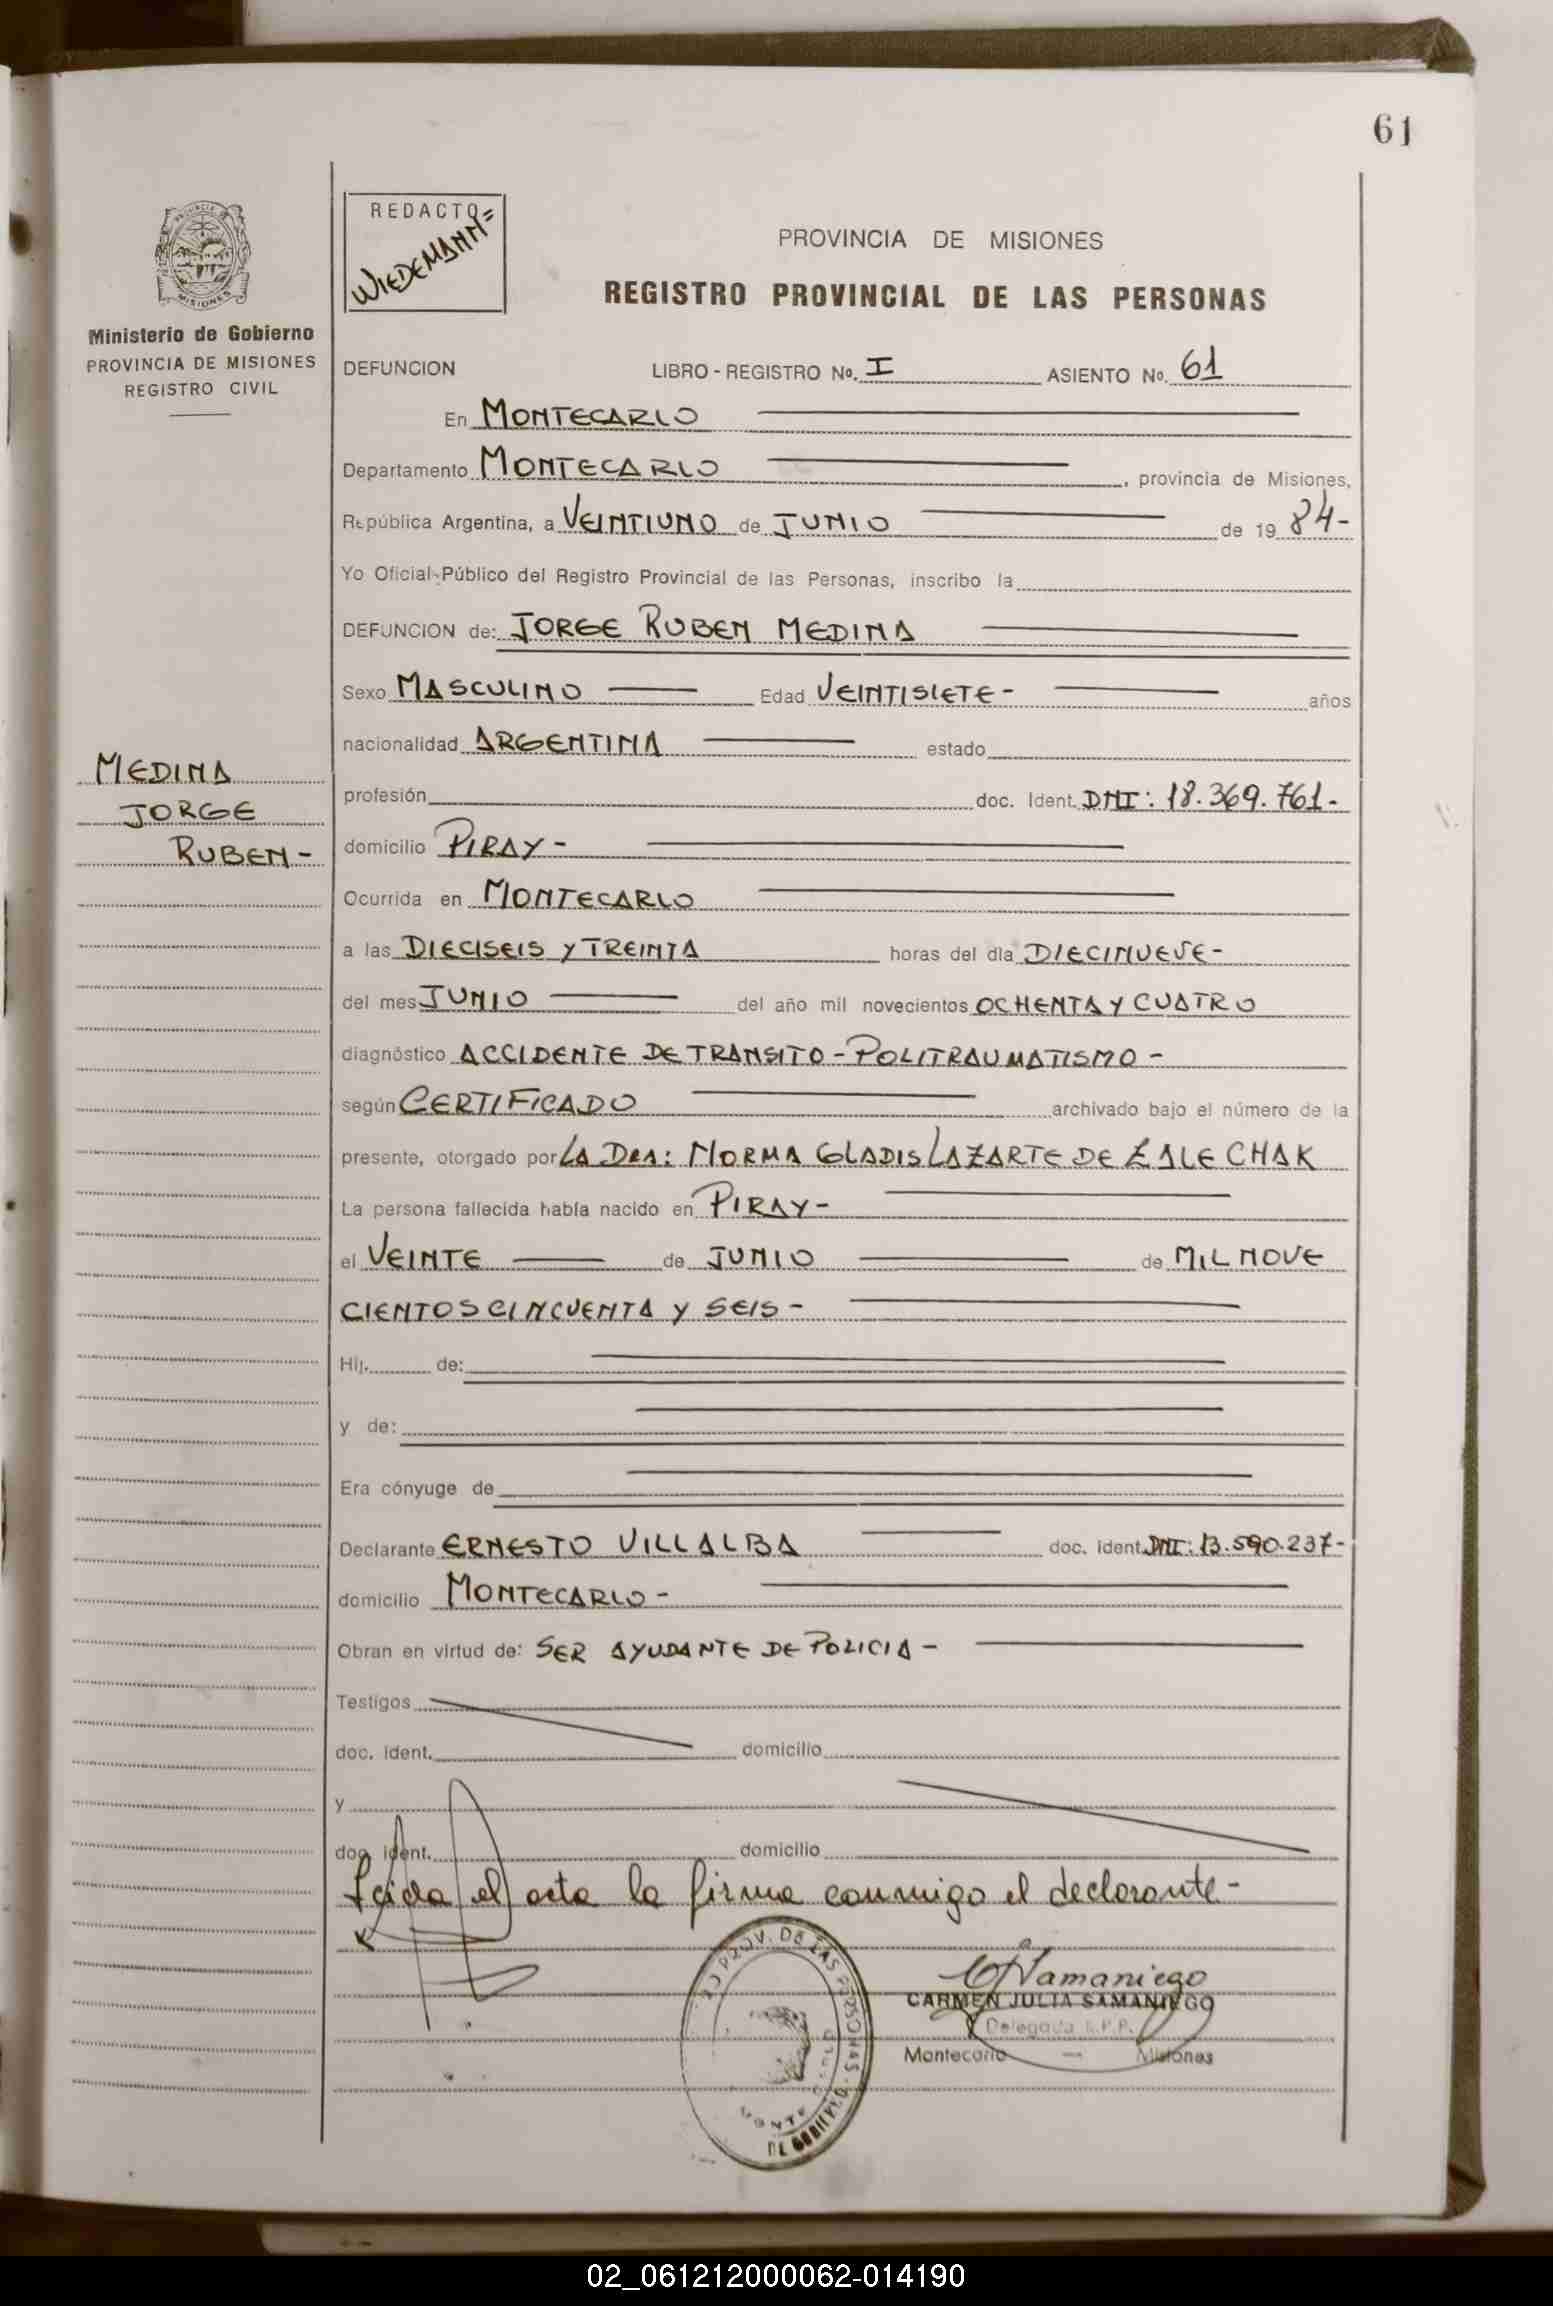 61
PROVINCIA DE MISIONES
Ministerio de Gobierno
PROVINCIA DE MISIONES
REGISTRO CIVIL
REDACTO
WIEDEMANN=
PROVINCIA DE MISIONES
REGISTRO PROVINCIAL DE LAS PERSONAS
DEFUNCION LIBRO - REGISTRO No. I ASIENTO No. 61
En MONTECARLO
Departamento MONTECARLO, provincia de Misiones,
República Argentina, a VEINTIUNO de JUNIO de 19 84-
Yo Oficial Público del Registro Provincial de las Personas, inscribo la
DEFUNCION de: JORGE RUBEN MEDINA
Sexo MASCULINO Edad VEINTISIETE- años
nacionalidad ARGENTINA estado
MEDINA
JORGE
RUBEN-
profesión doc. Ident. DNI: 18.369.761-
domicilio PIRAY-
Ocurrida en MONTECARLO
a las DIECISEIS Y TREINTA horas del día DIECINUEVE-
del mes JUNIO del año mil novecientos OCHENTA Y CUATRO
diagnóstico ACCIDENTE DE TRANSITO-POLITRAUMATISMO-
según CERTIFICADO archivado bajo el número de la
presente, otorgado por LA DRA: NORMA GLADIS LAZARTE DE ZALECHAK
La persona fallecida había nacido en PIRAY-
el VEINTE de JUNIO de MIL NOVE
CIENTOS CINCUENTA Y SEIS-
Hij. de:
y de:
Era cónyuge de
Declarante ERNESTO VILLALBA doc. ident. DNI: 13.590.237-
domicilio MONTECARLO-
Obran en virtud de: SER AYUDANTE DE POLICIA-
Testigos
doc. ident. domicilio
y
doc. ident. domicilio
Leida el acta la firma conmigo el declarante-
CJSamaniego
CARMEN JULIA SAMANIEGO
Delegada R.P.P.
Montecarlo — Misiones
PROV. DE LAS PERSONAS
02_061212000062-014190